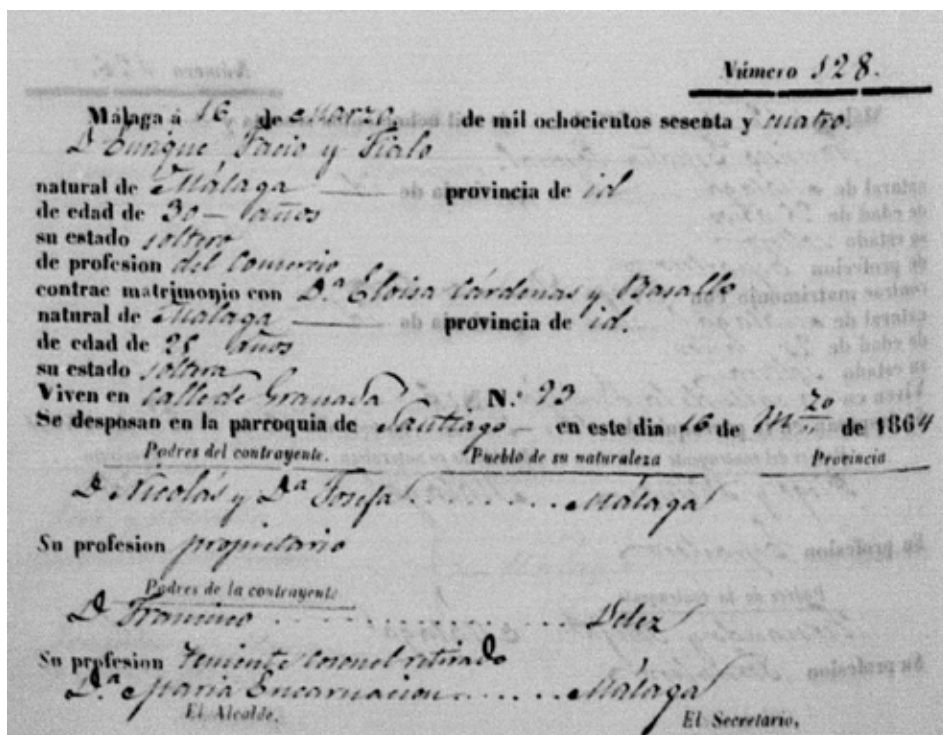 Número 128.
Málaga á 16 de Marzo de mil ochocientos sesenta y cuatro.
D. Enrique Facio y Fialo
natural de Málaga provincia de id
de edad de 30 años
su estado soltero
de profesion del Comercio
contrae matrimonio con D.ª Eloisa Cárdenas y Basallo
natural de Malaga provincia de id.
de edad de años
su estado soltera
Viven en calle de Granada N.º 23
Se desposan en la parroquia de Santiago en este dia 16 de Mzo de 1864
Padres del contrayente. Pueblo de su naturaleza Provincia
D. Nicolás y Dª Josefa ........ Málaga
Su profesion propietario
Padres de la contrayente
D. Francisco ........ Velez
Su profesion Teniente Coronel retirado
D.ª Maria Encarnacion ..... Málaga
El Alcalde, El Secretario,